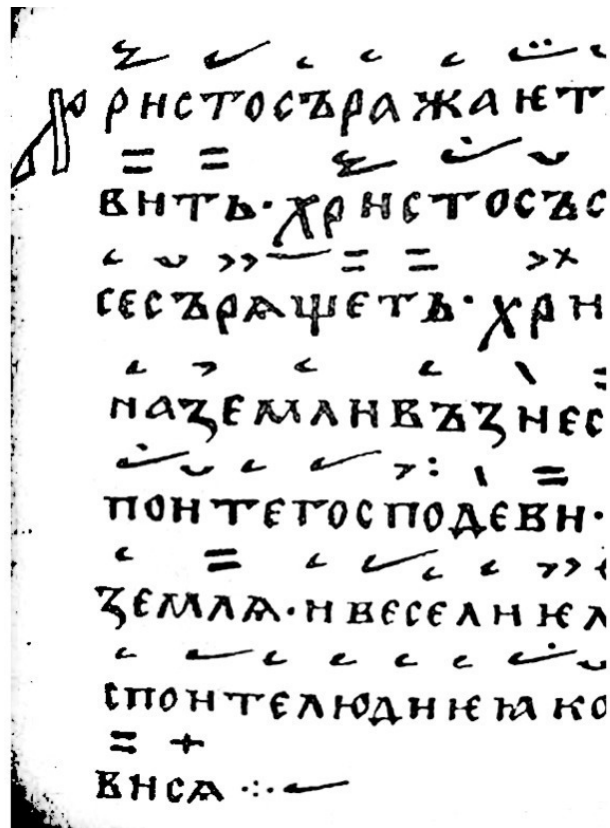 Христосъражаѥт
вить·христосъс
сесъращѣть·хри
наземливъзнес
поитегосподеви·
землѧ·ивеселиѥл
споителюдиѥꙗко
висѧ·:·